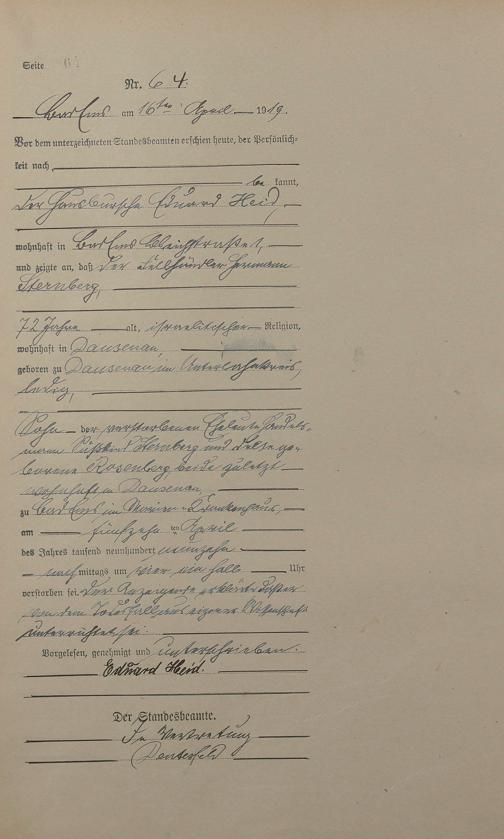 Seite
Nr. 64.
Bad Ems am 16ten April 1919.
Vor dem unterzeichneten Standesbeamten erschien heute, der Persönlich-
keit nach
be kannt,
der Hausbursche Eduard Heid,
wohnhaft in Bad Ems Bleichstraße 1,
und zeigte an, daß der Fellhändler Hermann
Sternberg,
72 Jahre alt, israelitischer Religion,
wohnhaft in Dausenau,
geboren zu Dausenau im Unterlahnkreis,
ledig,
Sohn der verstorbenen Eheleute Handels-
mann Sternberg und ge-
borene Rosenberg beide zuletzt
wohnhaft in Dausenau,
zu Bad Ems im Marien-Krankenhaus,
am fünfzehn ten April
des Jahres tausend neunhundert neunzehn
nach mittags um vier ein halb Uhr
verstorben sei. Der Anzeigende erklärte daß er
von dem Todesfall aus eigener Wissenschaft
unterrichtet sei.
Vorgelesen, genehmigt und unterschrieben.
Eduard Heid.
Der Standesbeamte.
In Vertretung